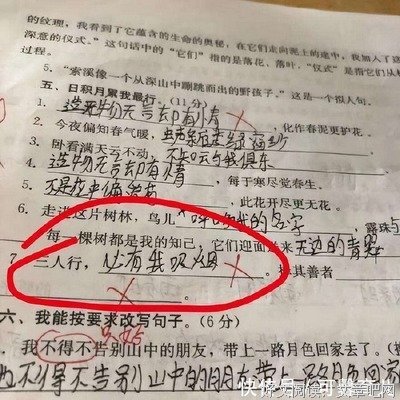 的纹理，我看到了它蕴含的生命的奥秘，在它们走向泥土的途中，我加入了这
深意的仪式。"这句话中的"它们"指的是落花、落叶，"仪式"是指它们从
过程。
5. "索溪像一个从深山中蹦跳而出的野孩子。"这是一个拟人句。
五、日积月累我最行。(11分)
1. 造物无言却有情，化作春泥更护花。
2. 今夜偏知春气暖，虫声新透绿窗纱
3. 卧看满天云不动，不知云与我俱东
4. 造物无言却有情，每于寒尽觉春生。
5. 不是花中偏爱菊，此花开尽更无花。
6. 走进这片树林，鸟儿呼唤我的名字，露珠与
每一棵树都是我的知己，它们迎面送来无边的青翠
7. 三人行，必有我吸烟。择其善者
。
六、我能按要求改写句子。(6分)
我不得不告别山中的朋友，带上一路月色回家去了。
不得不告别山中的朋友带上一路月色回家